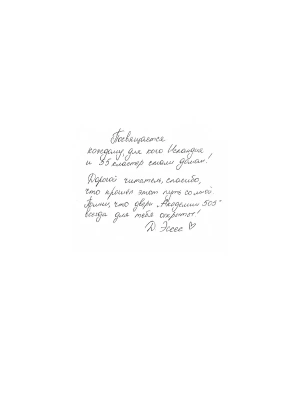 Посвящается
каждому, для кого Искандия
и 33 кластер стали домом!
Дорогой читатель, спасибо,
что прошел этот путь со мной.
Помни, что двери „Академии 505"
всегда для тебя открыты!
Д. Эссес ♡